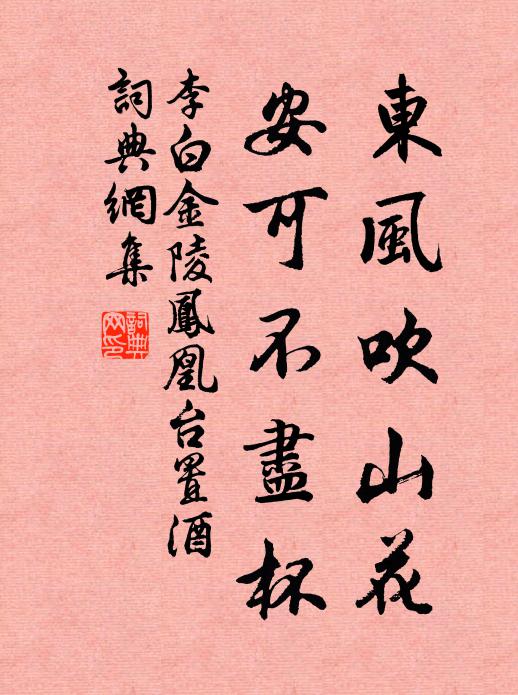 東風吹山花
安可不盡杯
李白金陵鳳凰台置酒
詞典網集
詞典
网印